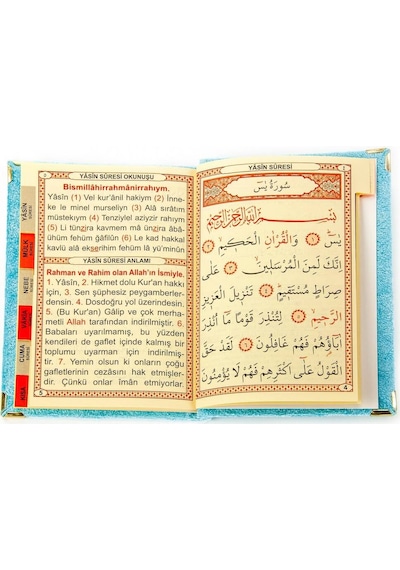 YÂSİN SÛRESİ OKUNUŞU
Bismillâhirrahmânirrahıym.
Yâsîn (1) Vel kur'ânil hakiym (2) İnne-
ke le minel murseliyn (3) Alâ sırâtım
müstekıym (4) Tenziylel aziyzir rahıym
(5) Li tünzira kavmem mâ ünzira âbâ-
ühüm fehüm ğâfilûn (6) Le kad hakkal
kavlü alâ ekserihim fehüm lâ yü'minûn
YÂSİN SÛRESİ ANLAMI
Rahman ve Rahim olan Allah'ın İsmiyle.
1. Yâsîn, 2. Hikmet dolu Kur'an hakkı
için, 3. Sen şüphesiz peygamberler-
densin. 4. Dosdoğru yol üzerindesin.
5. (Bu Kur'an) Gâlip ve çok merha-
metli Allah tarafından indirilmiştir. 6.
Babaları uyarılmamış, bu yüzden
kendileri de gaflet içinde kalmış bir
toplumu uyarman için indirilmiş-
tir. 7. Yemin olsun ki onların çoğu
gafletlerinin cezasını hak etmişler-
dir. Çünkü onlar îmân etmiyorlar.
5
YÂSİN SÛRESİ
MÜLK
NEBE
VAKIA
CUMA
KISA
YÂSİN SÛRESİ
سُورَةُ يٰسٓ
بِسْمِ اللّٰهِ الرَّحْمٰنِ الرَّحِيمِ
يٰسٓ ﴿١﴾ وَالْقُرْاٰنِ الْحَكِيمِ ﴿٢﴾
اِنَّكَ لَمِنَ الْمُرْسَلِينَ ﴿٣﴾ عَلٰى
صِرَاطٍ مُسْتَقِيمٍ ﴿٤﴾ تَنْزِيلَ الْعَزِيزِ
الرَّحِيمِ ﴿٥﴾ لِتُنْذِرَ قَوْمًا مَٓا اُنْذِرَ
اٰبَٓاؤُهُمْ فَهُمْ غَافِلُونَ ﴿٦﴾ لَقَدْ حَقَّ
الْقَوْلُ عَلٰٓى اَكْثَرِهِمْ فَهُمْ لَا يُؤْمِنُونَ
4